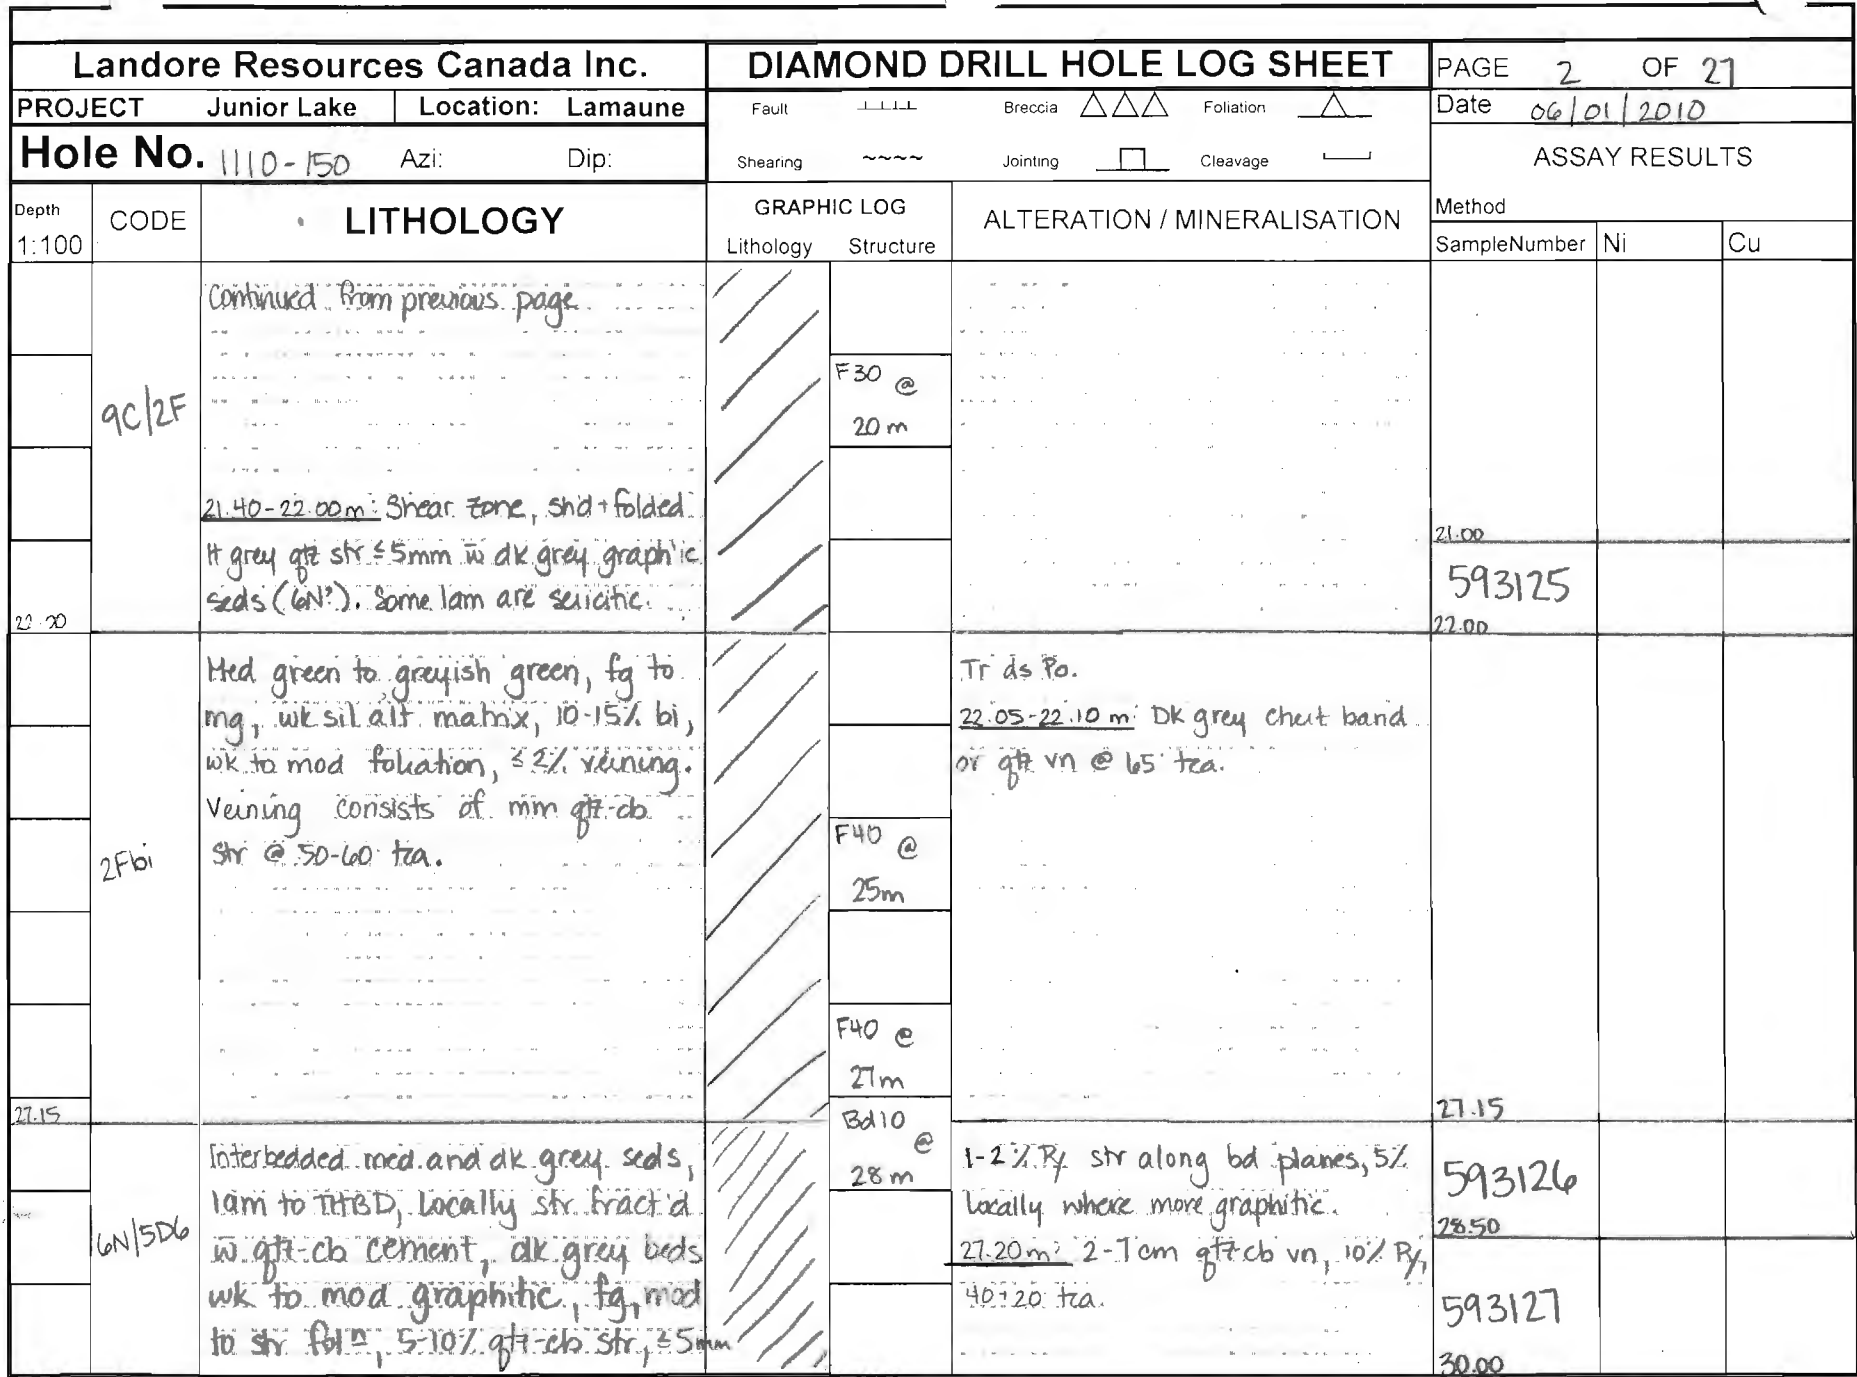 Landore Resources Canada Inc.
DIAMOND DRILL HOLE LOG SHEET
PAGE 2 OF 27
PROJECT Junior Lake Location: Lamaune
Fault Breccia Foliation
Date 06/01/2010
Hole No. 1110-150 Azi: Dip:
Shearing Jointing Cleavage
ASSAY RESULTS
Depth 1:100
CODE
LITHOLOGY
GRAPHIC LOG
Lithology Structure
ALTERATION / MINERALISATION
Method
SampleNumber Ni Cu
Continued from previous page
9C/2F
F30 @
20 m
21.40-22.00m: Shear zone, shd + folded
lt grey qtz str ≤5mm w dk grey graph'ic
seds (6N?). Some lam are sericitic.
21.00
593125
22.00
22.00
Med green to greyish green, fg to
mg, wk sil alt matrix, 10-15% bi,
wk to mod foliation, ≤2% veining.
Veining consists of mm qtz-cb
str @ 50-60 tca.
2Fbi
F40 @
25m
F40 @
27m
Tr ds Po.
22.05-22.10 m: Dk grey chert band
or qtz vn @ 65 tca.
27.15
27.15
Interbedded med and dk grey seds,
lam to THBD, Locally str fract'd
w qtz-cb cement, dk grey beds
wk to mod graphitic, fg, mod
to str folⁿ, 5-10% qtz-cb str, ≤5mm
6N/5D6
Bd10 @
28 m
1-2% Py str along bd planes, 5%
locally where more graphitic.
27.20m: 2-7cm qtz cb vn, 10% Py,
40±20 tca.
593126
28.50
593127
30.00